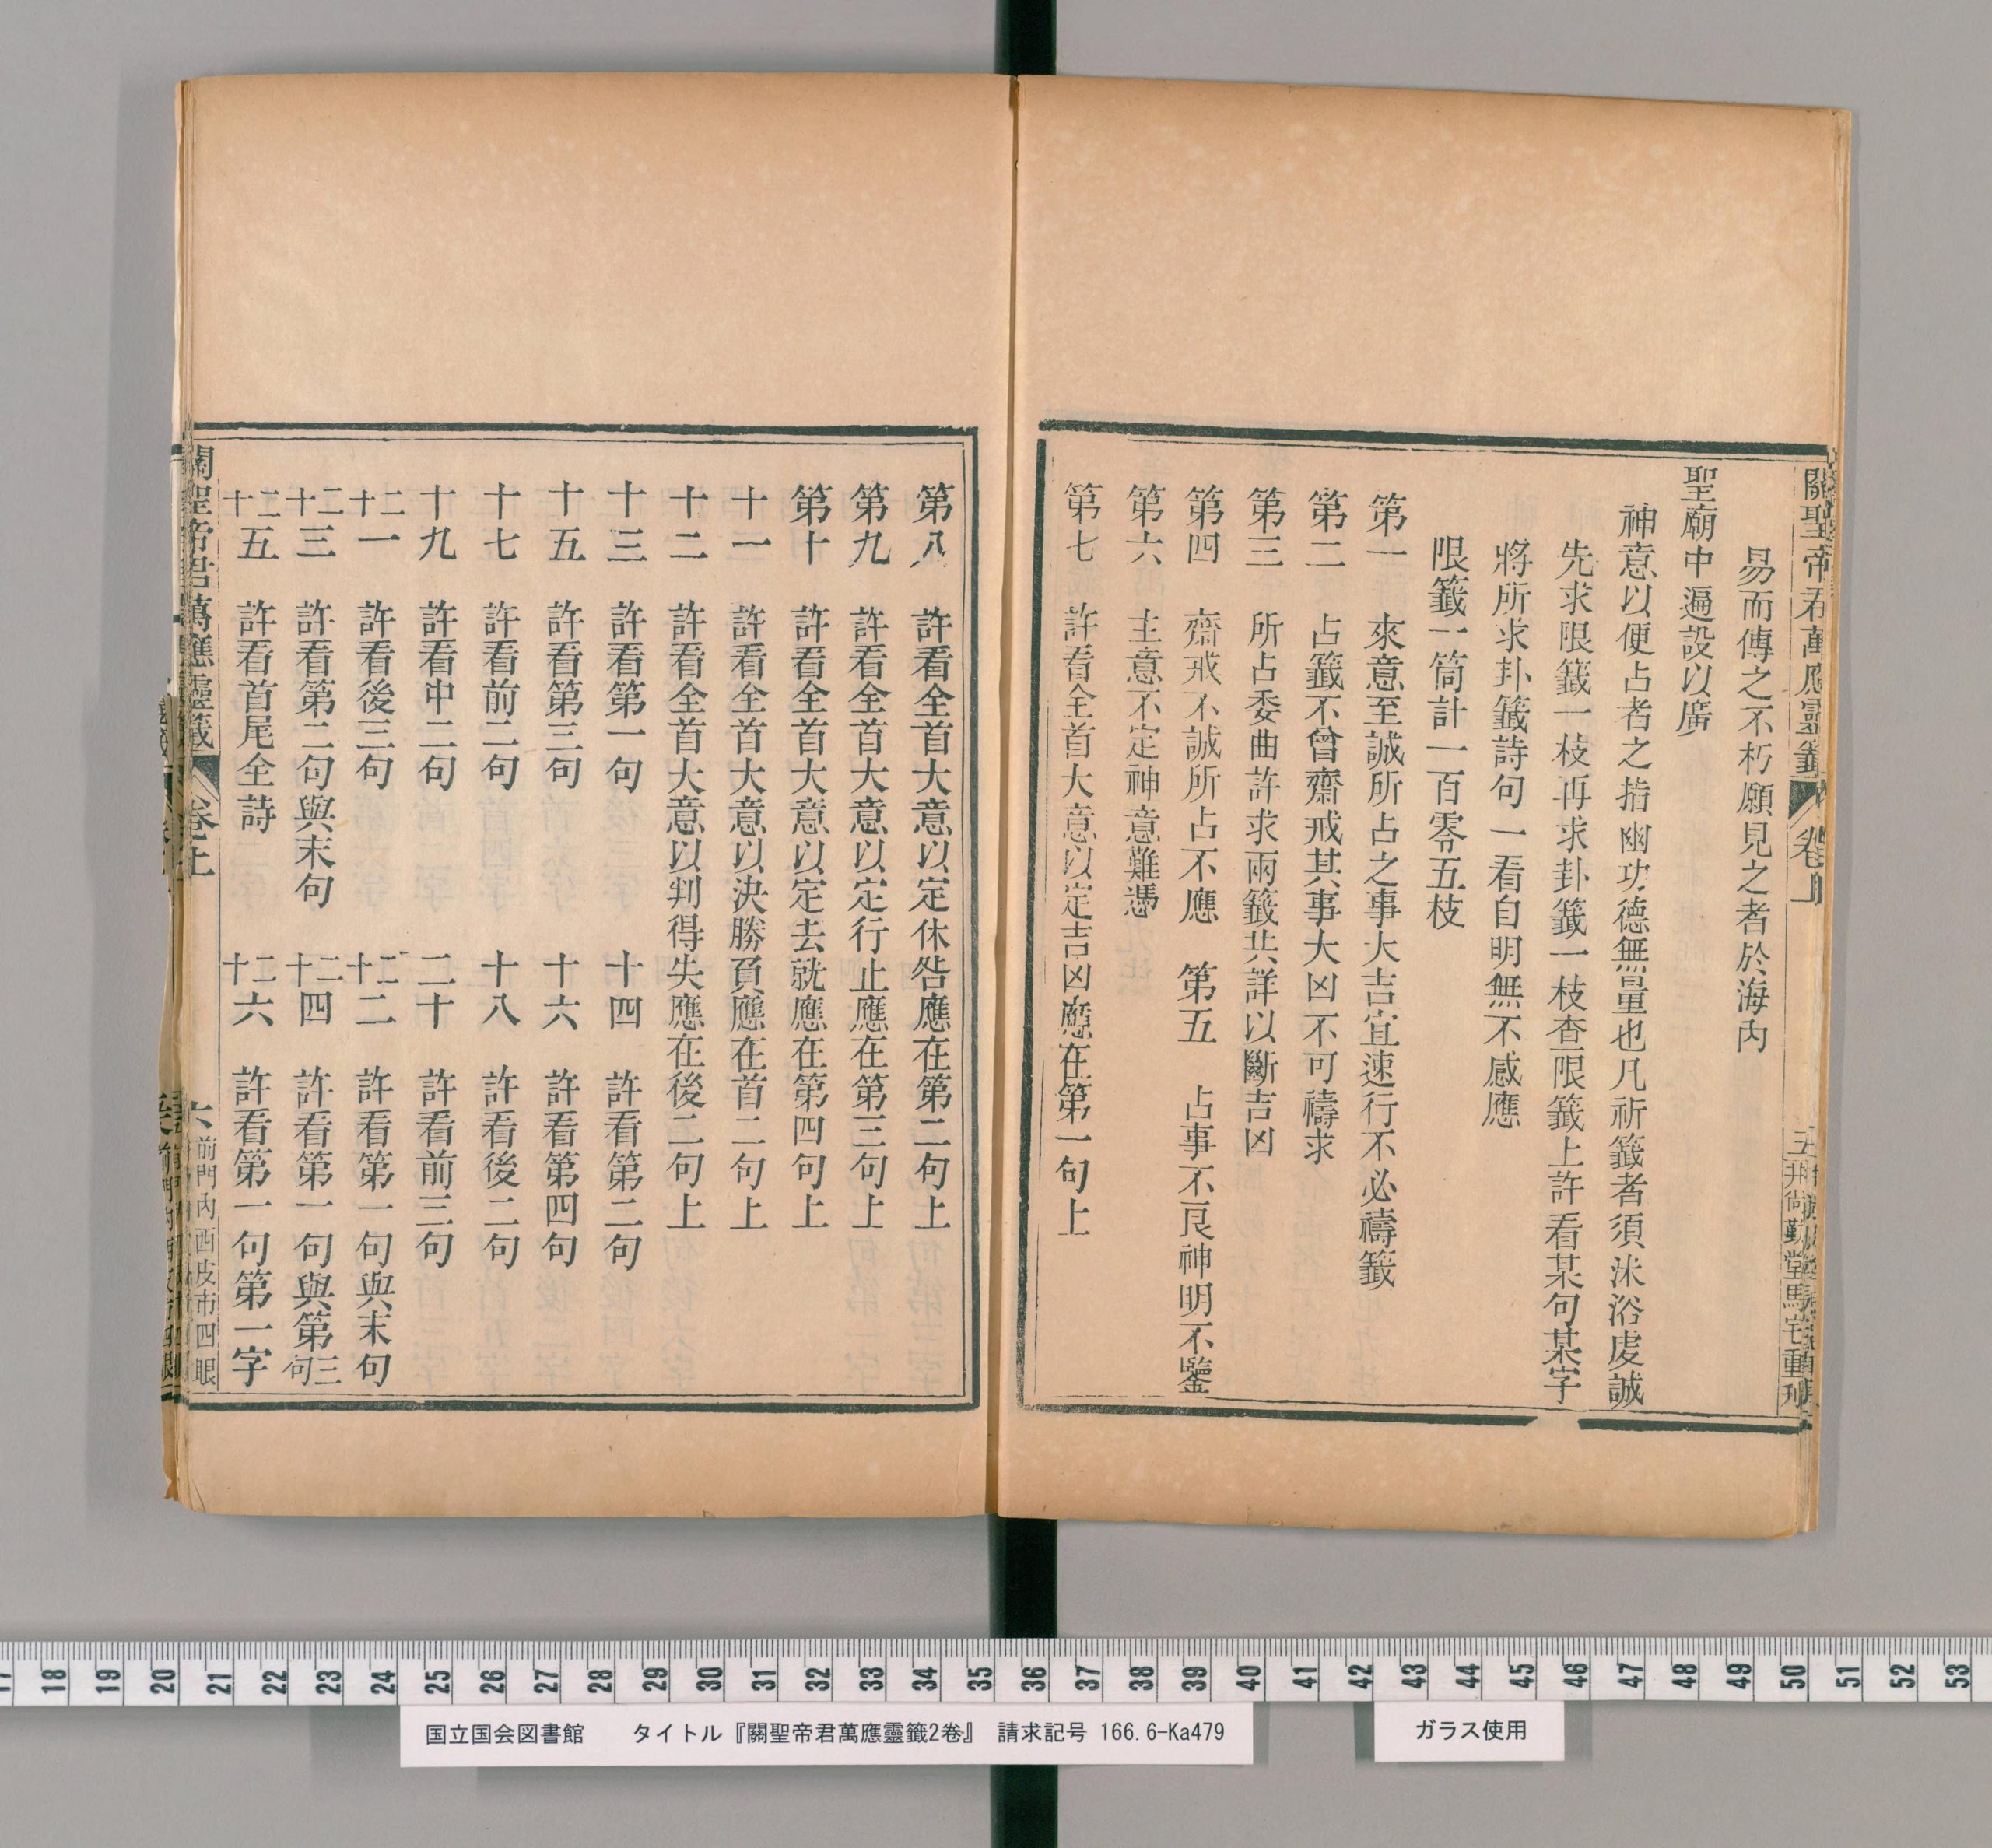 關聖帝君萬應靈籤 卷上 五 井尚勤堂馬宅重刊
易而傳之不朽願見之者於海內
聖廟中遍設以廣
神意以便占者之指幽功德無量也凡祈籤者須沐浴虔誠
先求限籤一枝再求卦籤一枝查限籤上許看某句某字
將所求卦籤詩句一看自明無不感應
限籤一筒計一百零五枝
第一 來意至誠所占之事大吉宜速行不必禱籤
第二 占籤不曾齋戒其事大凶不可禱求
第三 所占委曲許求兩籤共詳以斷吉凶
第四 齋戒不誠所占不應 第五 占事不良神明不鑒
第六 主意不定神意難憑
第七 許看全首大意以定吉凶應在第一句上
第八 許看全首大意以定休咎應在第二句上
第九 許看全首大意以定行止應在第三句上
第十 許看全首大意以定去就應在第四句上
十一 許看全首大意以決勝負應在首二句上
十二 許看全首大意以判得失應在後二句上
十三 許看第一句 十四 許看第二句
十五 許看第三句 十六 許看第四句
十七 許看前二句 十八 許看後二句
十九 許看中二句 二十 許看前三句
二十一 許看後三句 二十二 許看第一句與末句
二十三 許看第二句與末句 二十四 許看第一句與第三句
二十五 許看首尾全詩 二十六 許看第一句第一字
關聖帝君萬應靈籤 卷上 六 前門內西皮市四眼
17 18 19 20 21 22 23 24 25 26 27 28 29 30 31 32 33 34 35 36 37 38 39 40 41 42 43 44 45 46 47 48 49 50 51 52 53
国立国会図書館 タイトル『關聖帝君萬應靈籤2卷』 請求記号 166.6-Ka479
ガラス使用